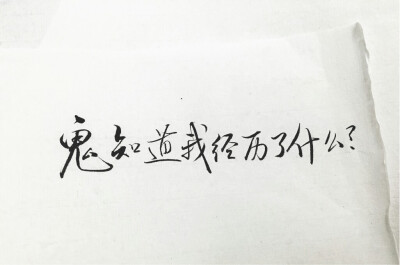 鬼知道我经历了什么？